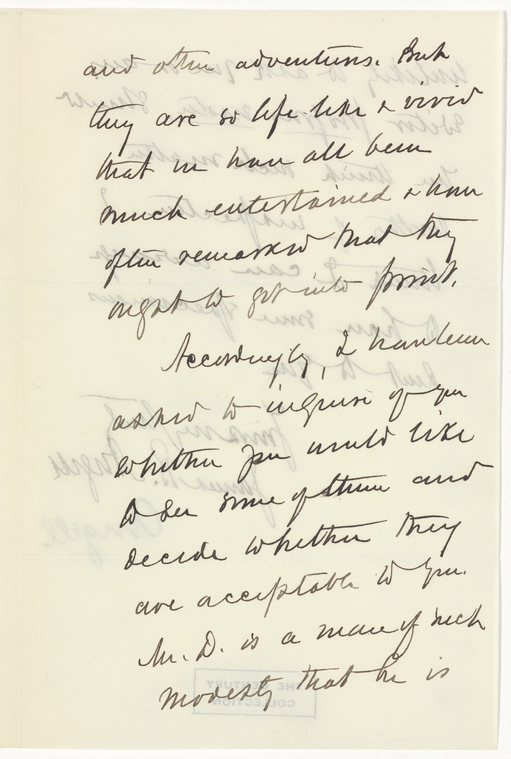 and other adventures. But
they are so life like & vivid
that we have all been
much entertained & have
often remarked that they
ought to get into print.
Accordingly, I have been
asked to inquire of you
whether you would like
to see some of them and
decide whether they
are acceptable to you.
Mr. D. is a man of such
modesty that he is
THE CENTURY
COLLECTION